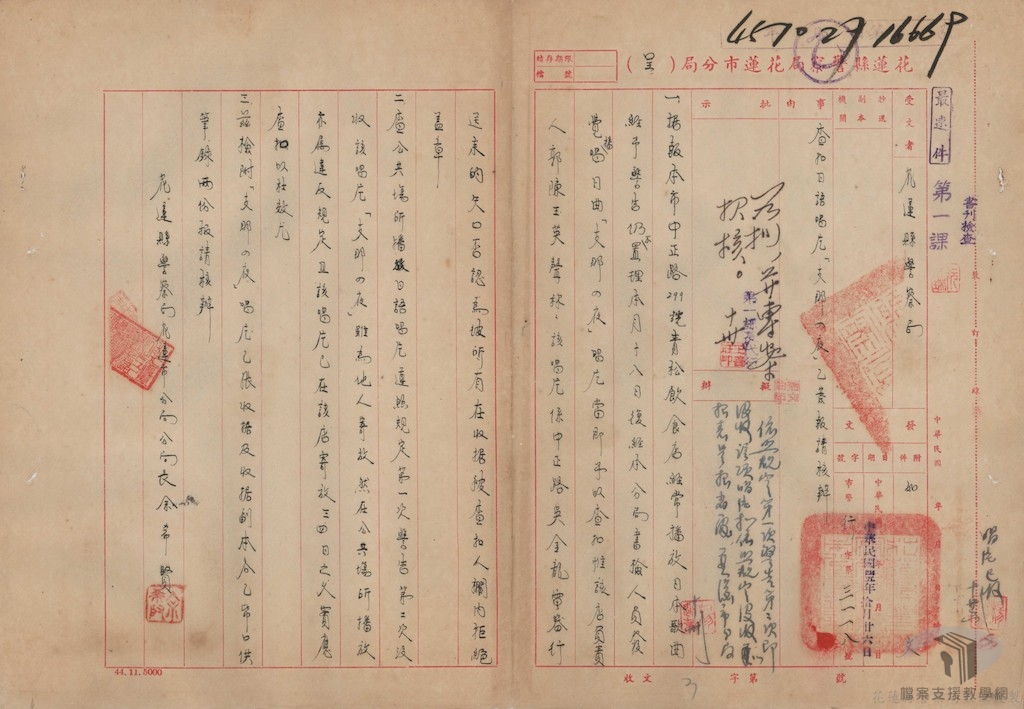 45.10.29 16669
花蓮縣警察局花蓮市分局（呈）
保存期限
檔號
最速件
第一課
書刊檢查
受文者
花蓮縣警察局
抄送副本機關
事由
查扣日語唱片「支那の夜」乙案報請核辦
批示
第一課
擬辦
發文
附件
如文
日期字號
中華民國
中華民國肆伍年拾月廿六日
市警行字第三一一八號
唱片已收
一、據報本市中正路299號青松飲食店經常播放日本歌曲
經予警告仍置理本月十八日復經本分局書檢人員發
覺播唱日曲「支那の夜」唱片當即予以查扣惟該店負責
人郭陳玉英聲稱：該唱片係中正路吳金龍電器行
送來的矢口否認為彼所有在收據被查扣人欄內拒絕
蓋章
二、查公共場所播放日語唱片違照規定第一次警告第二次沒
收該唱片「支那の夜」雖為他人寄放然在公共場所播放
亦屬違反規定且該唱片已在該店寄放三四日之久實應
查扣以社效尤
三、茲檢附「支那の夜」唱片乙張收據及收據副本合乙帋口供
筆錄兩份報請核辦
花蓮縣警察局花蓮市分局分局長余希賢
收文 字第 號
44.11.5000
檔案支援教學網